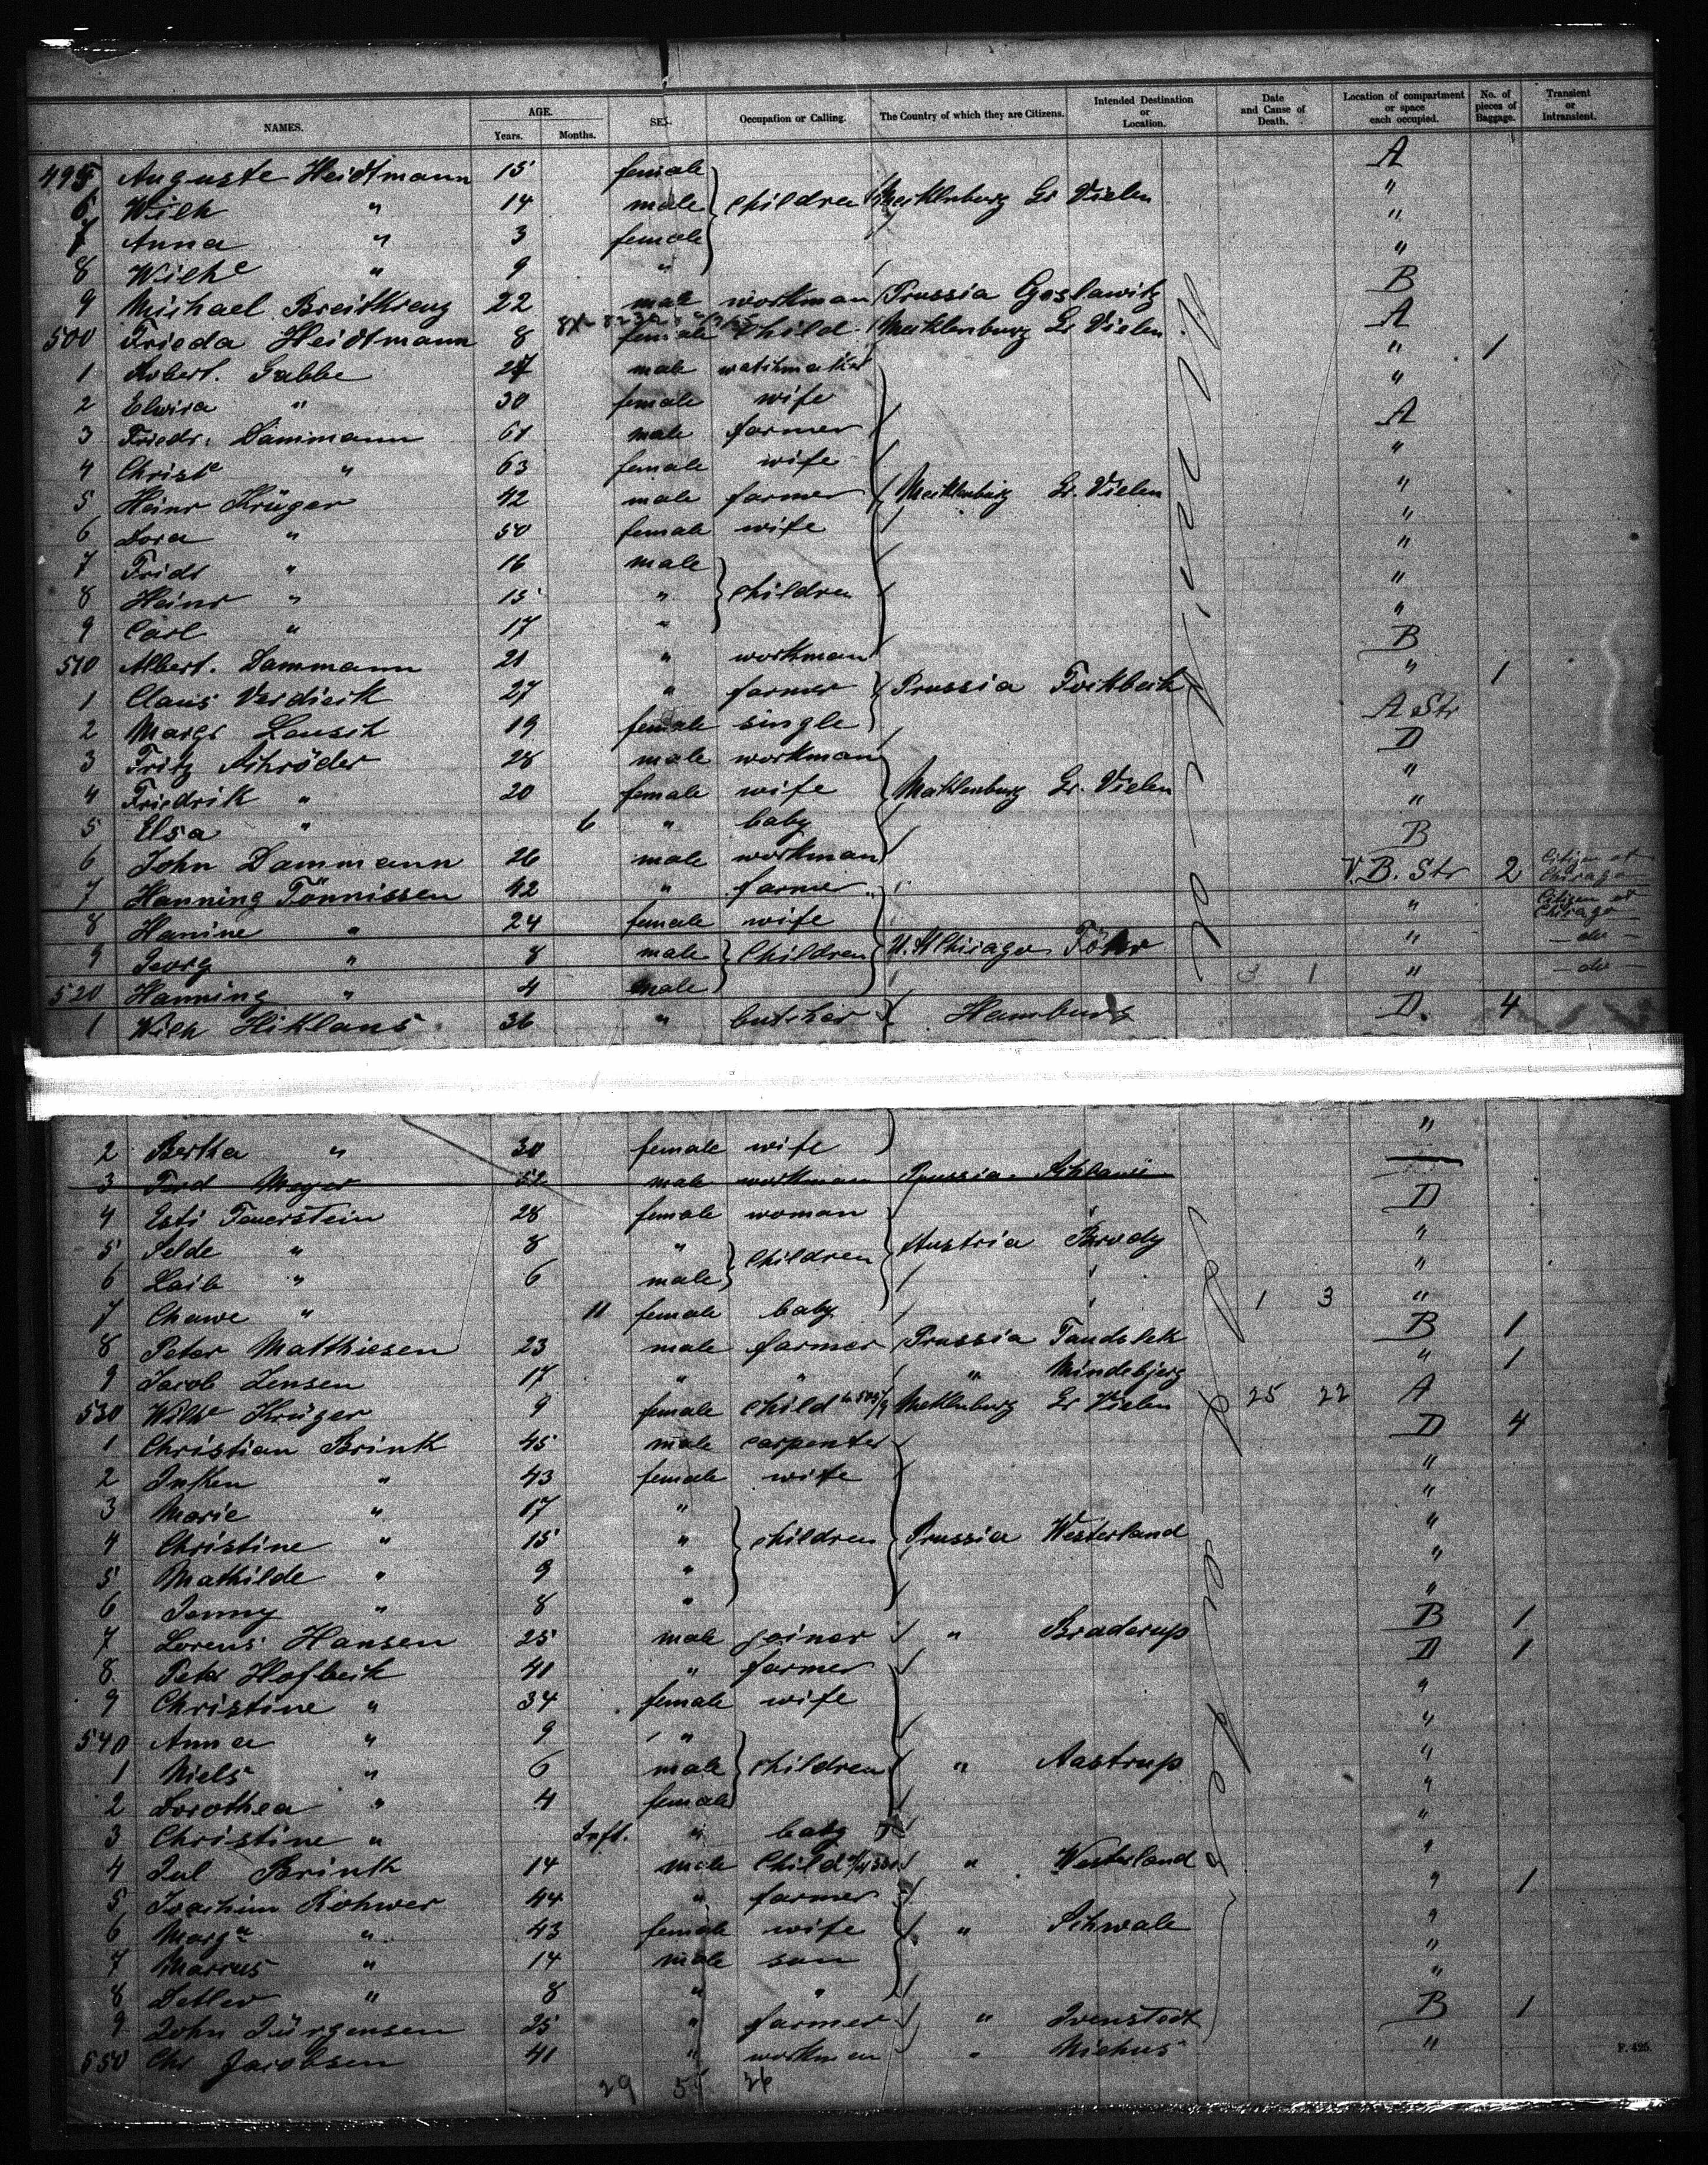 NAMES. AGE. Years. Months. SEX. Occupation or Calling. The Country of which they are Citizens. Intended Destination or Location. Date and Cause of Death. Location of compartment or space each occupied. No. of pieces of Baggage. Transient or Intransient.
495 Auguste Heidtmann 15 female A
6 Wilh " 14 male children Mecklenburg Gr Vielen "
7 Anna " 3 female "
8 Wilhe " 9 " "
9 Michael 22 male workman Prussia B
500 Frieda Heidtmann 8 female child Mecklenburg Gr Vielen A
1 Robert. Gabbe 27 male watchmaker " 1
2 Elwira " 30 female wife "
3 Friedr. Dammann 61 male farmer A
4 Christe " 63 female wife "
5 Heinr Krüger 42 male farmer Mecklenburg Gr. Vielen "
6 Dora " 50 female wife "
7 Fridr " 16 male "
8 Heinr " 15 " children "
9 Carl " 17 " "
510 Albert. Dammann 21 " workman B
1 Claus Verdieck 27 " farmer Prussia Fockbeck " 1
2 Margr 19 female single A Str
3 Fritz Schröder 28 male workman D
4 Friedrik " 20 female wife Mecklenburg Gr. Vielen "
5 Elsa " 6 " baby "
6 John Dammann 26 male workman B
7 Hanning Tönnissen 42 " farmer V.B. Str 2 Citizen at Chicago
8 Hanine " 24 female wife " Citizen at Chicago
9 Georg " 8 male Children U.S. Chicago Föhr " -do-
520 Hanning " 4 male 3 1 " -do-
1 Wilh Hiklans 36 " butcher Hamburg D. 4
2 Bertha " 30 female wife "
3 Ferd Meyer 52 male workman Prussia
4 Esti Feuerstein 28 female woman D
5 Selde " 8 " Children Austria Brody "
6 Laib " 6 male "
7 Chawe " 11 female baby 1 3 "
8 Peter Matthiesen 23 male farmer Prussia B 1
9 Jacob Jensen 17 " " " Mindebjerg " 1
530 Wilhe Krüger 9 female child Mecklenburg Gr Vielen 25 22 A
1 Christian Brink 45 male carpenter D 4
2 Inken " 43 female wife "
3 Marie " 17 " "
4 Christine " 15 " children Prussia Westerland "
5 Mathilde " 9 " "
6 Jenny " 8 " "
7 Lorens Hansen 25 male joiner " Braderup B 1
8 Peter Hofbeck 41 " farmer D 1
9 Christine " 34 female wife "
540 Anna " 9 " "
1 Niels " 6 male children " Aastrup "
2 Dorothea " 4 female "
3 Christine " Inft. " baby "
4 Jul Brink 14 male child " Westerland "
5 Joachim Rohwer 44 " farmer " 1
6 Marga " 43 female wife " Schwale "
7 Marcus " 14 male son "
8 Detlev " 8 " " "
9 John Jürgensen 25 " farmer " Ivenstedt B 1
550 Chr Jacobsen 41 " workman " Niehus "
29 5 26
F. 425.